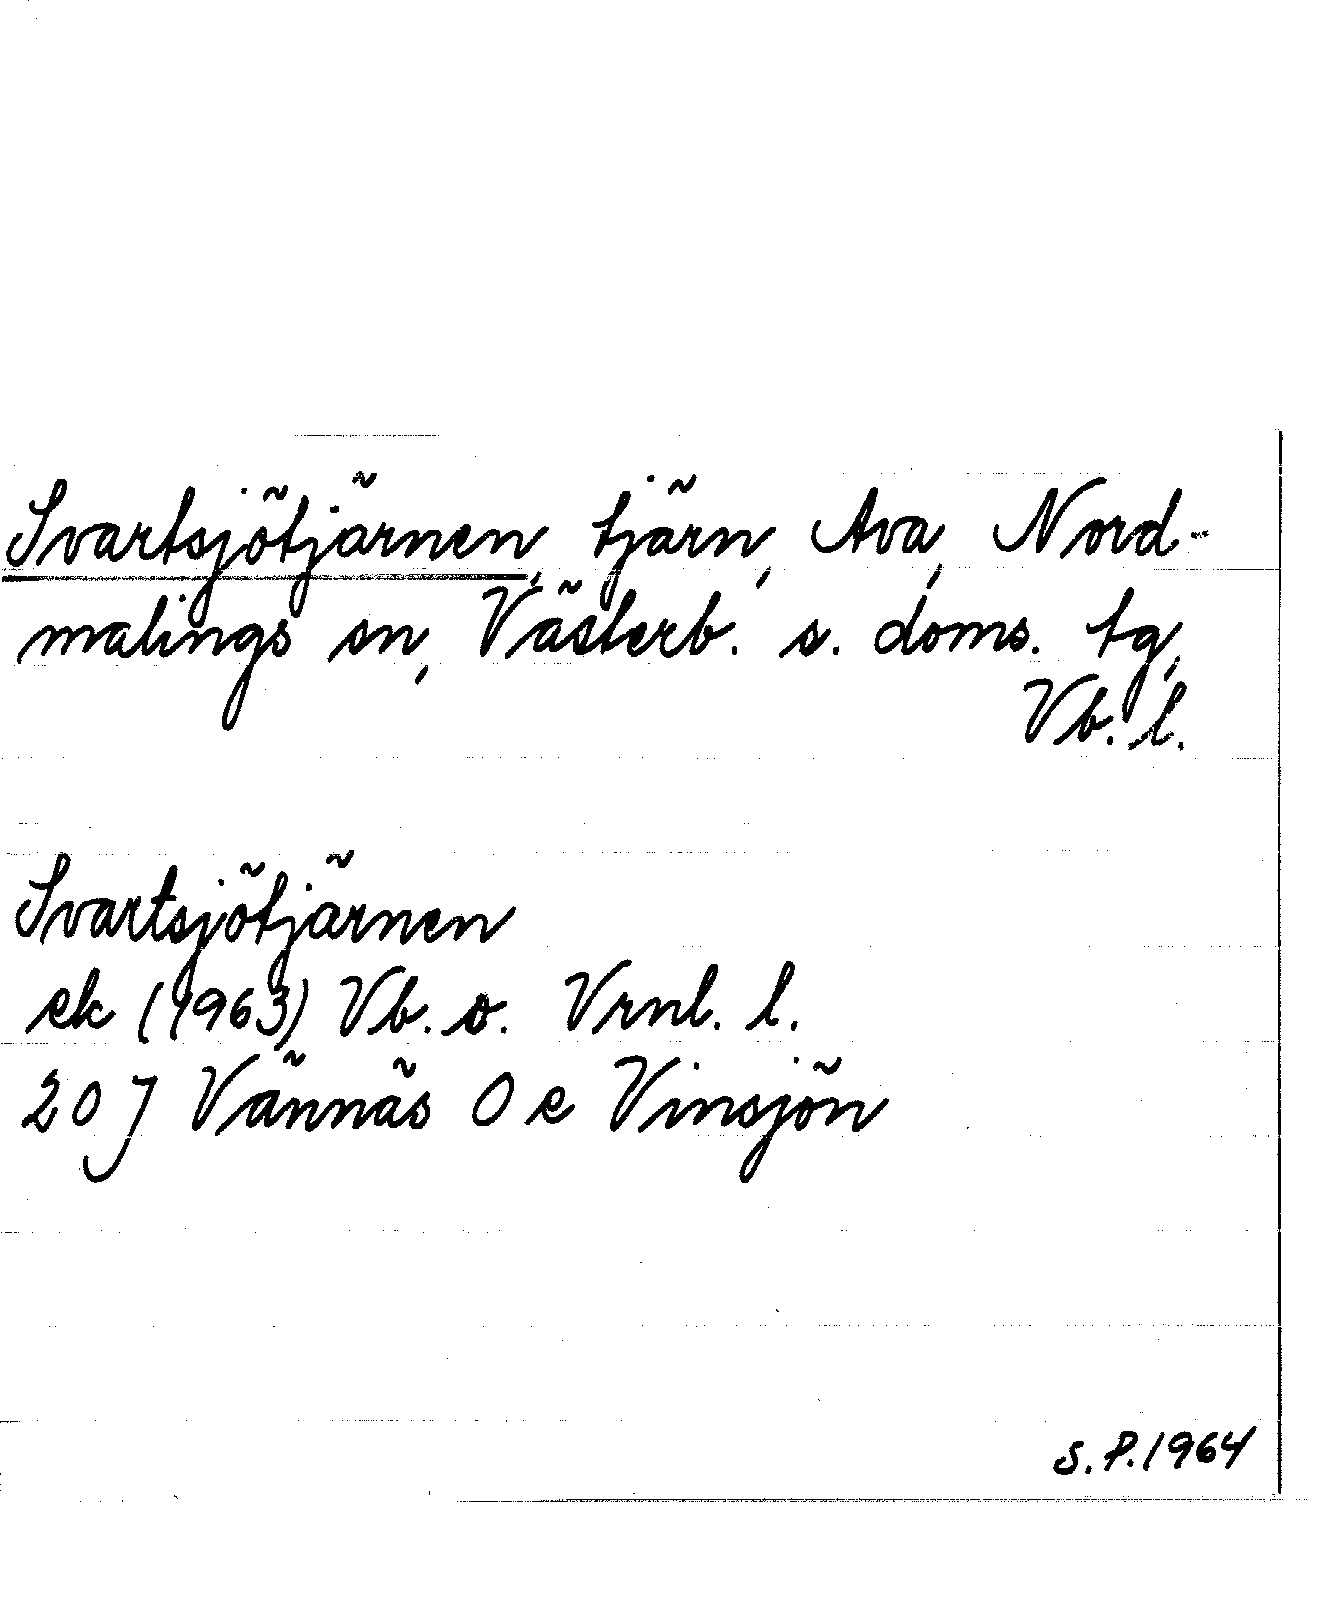 Svartsjötjärnen, tjärn, Ava, Nord-
malings sn, Västerb. s. doms. tg,
Vb. l.
Svartsjötjärnen
ek (1963) Vb. s. Vrnl. l.
20 J Vännäs 0 e Vinsjön
S. P. 1964